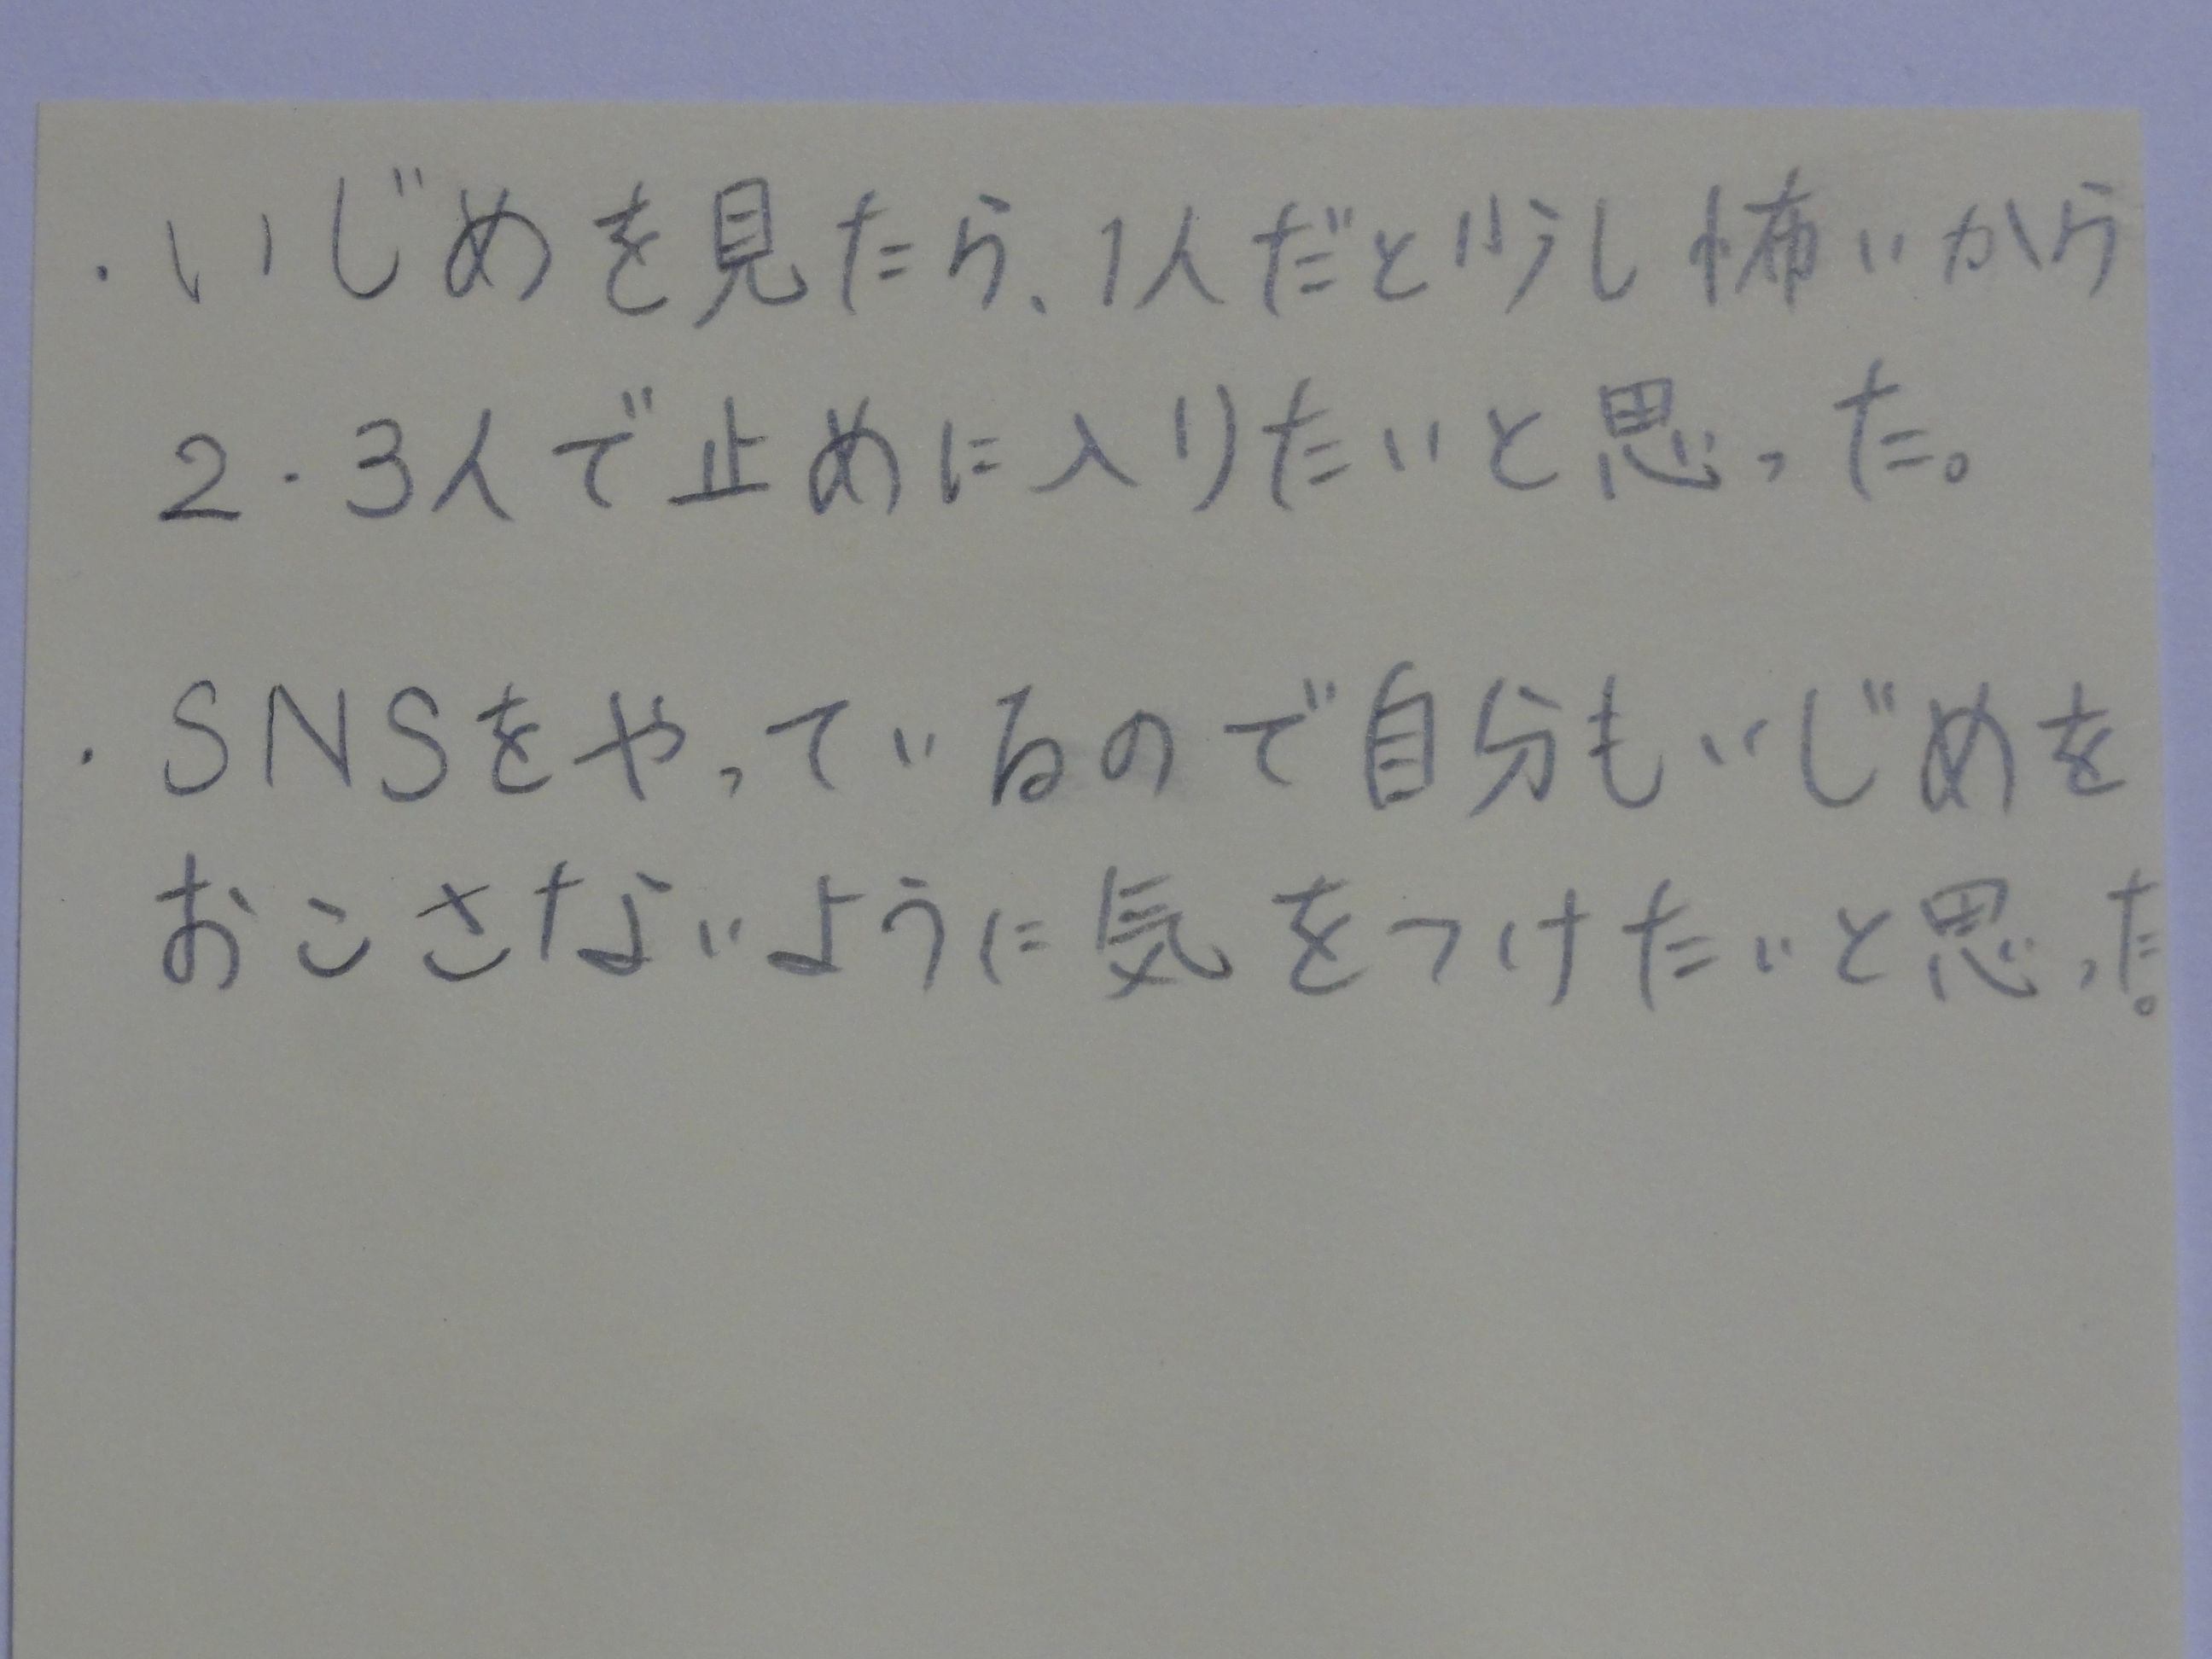 ・いじめを見たら、1人だと少し怖いから
2・3人で止めに入りたいと思った。
・SNSをやっているので自分もいじめを
おこさないように気をつけたいと思った。